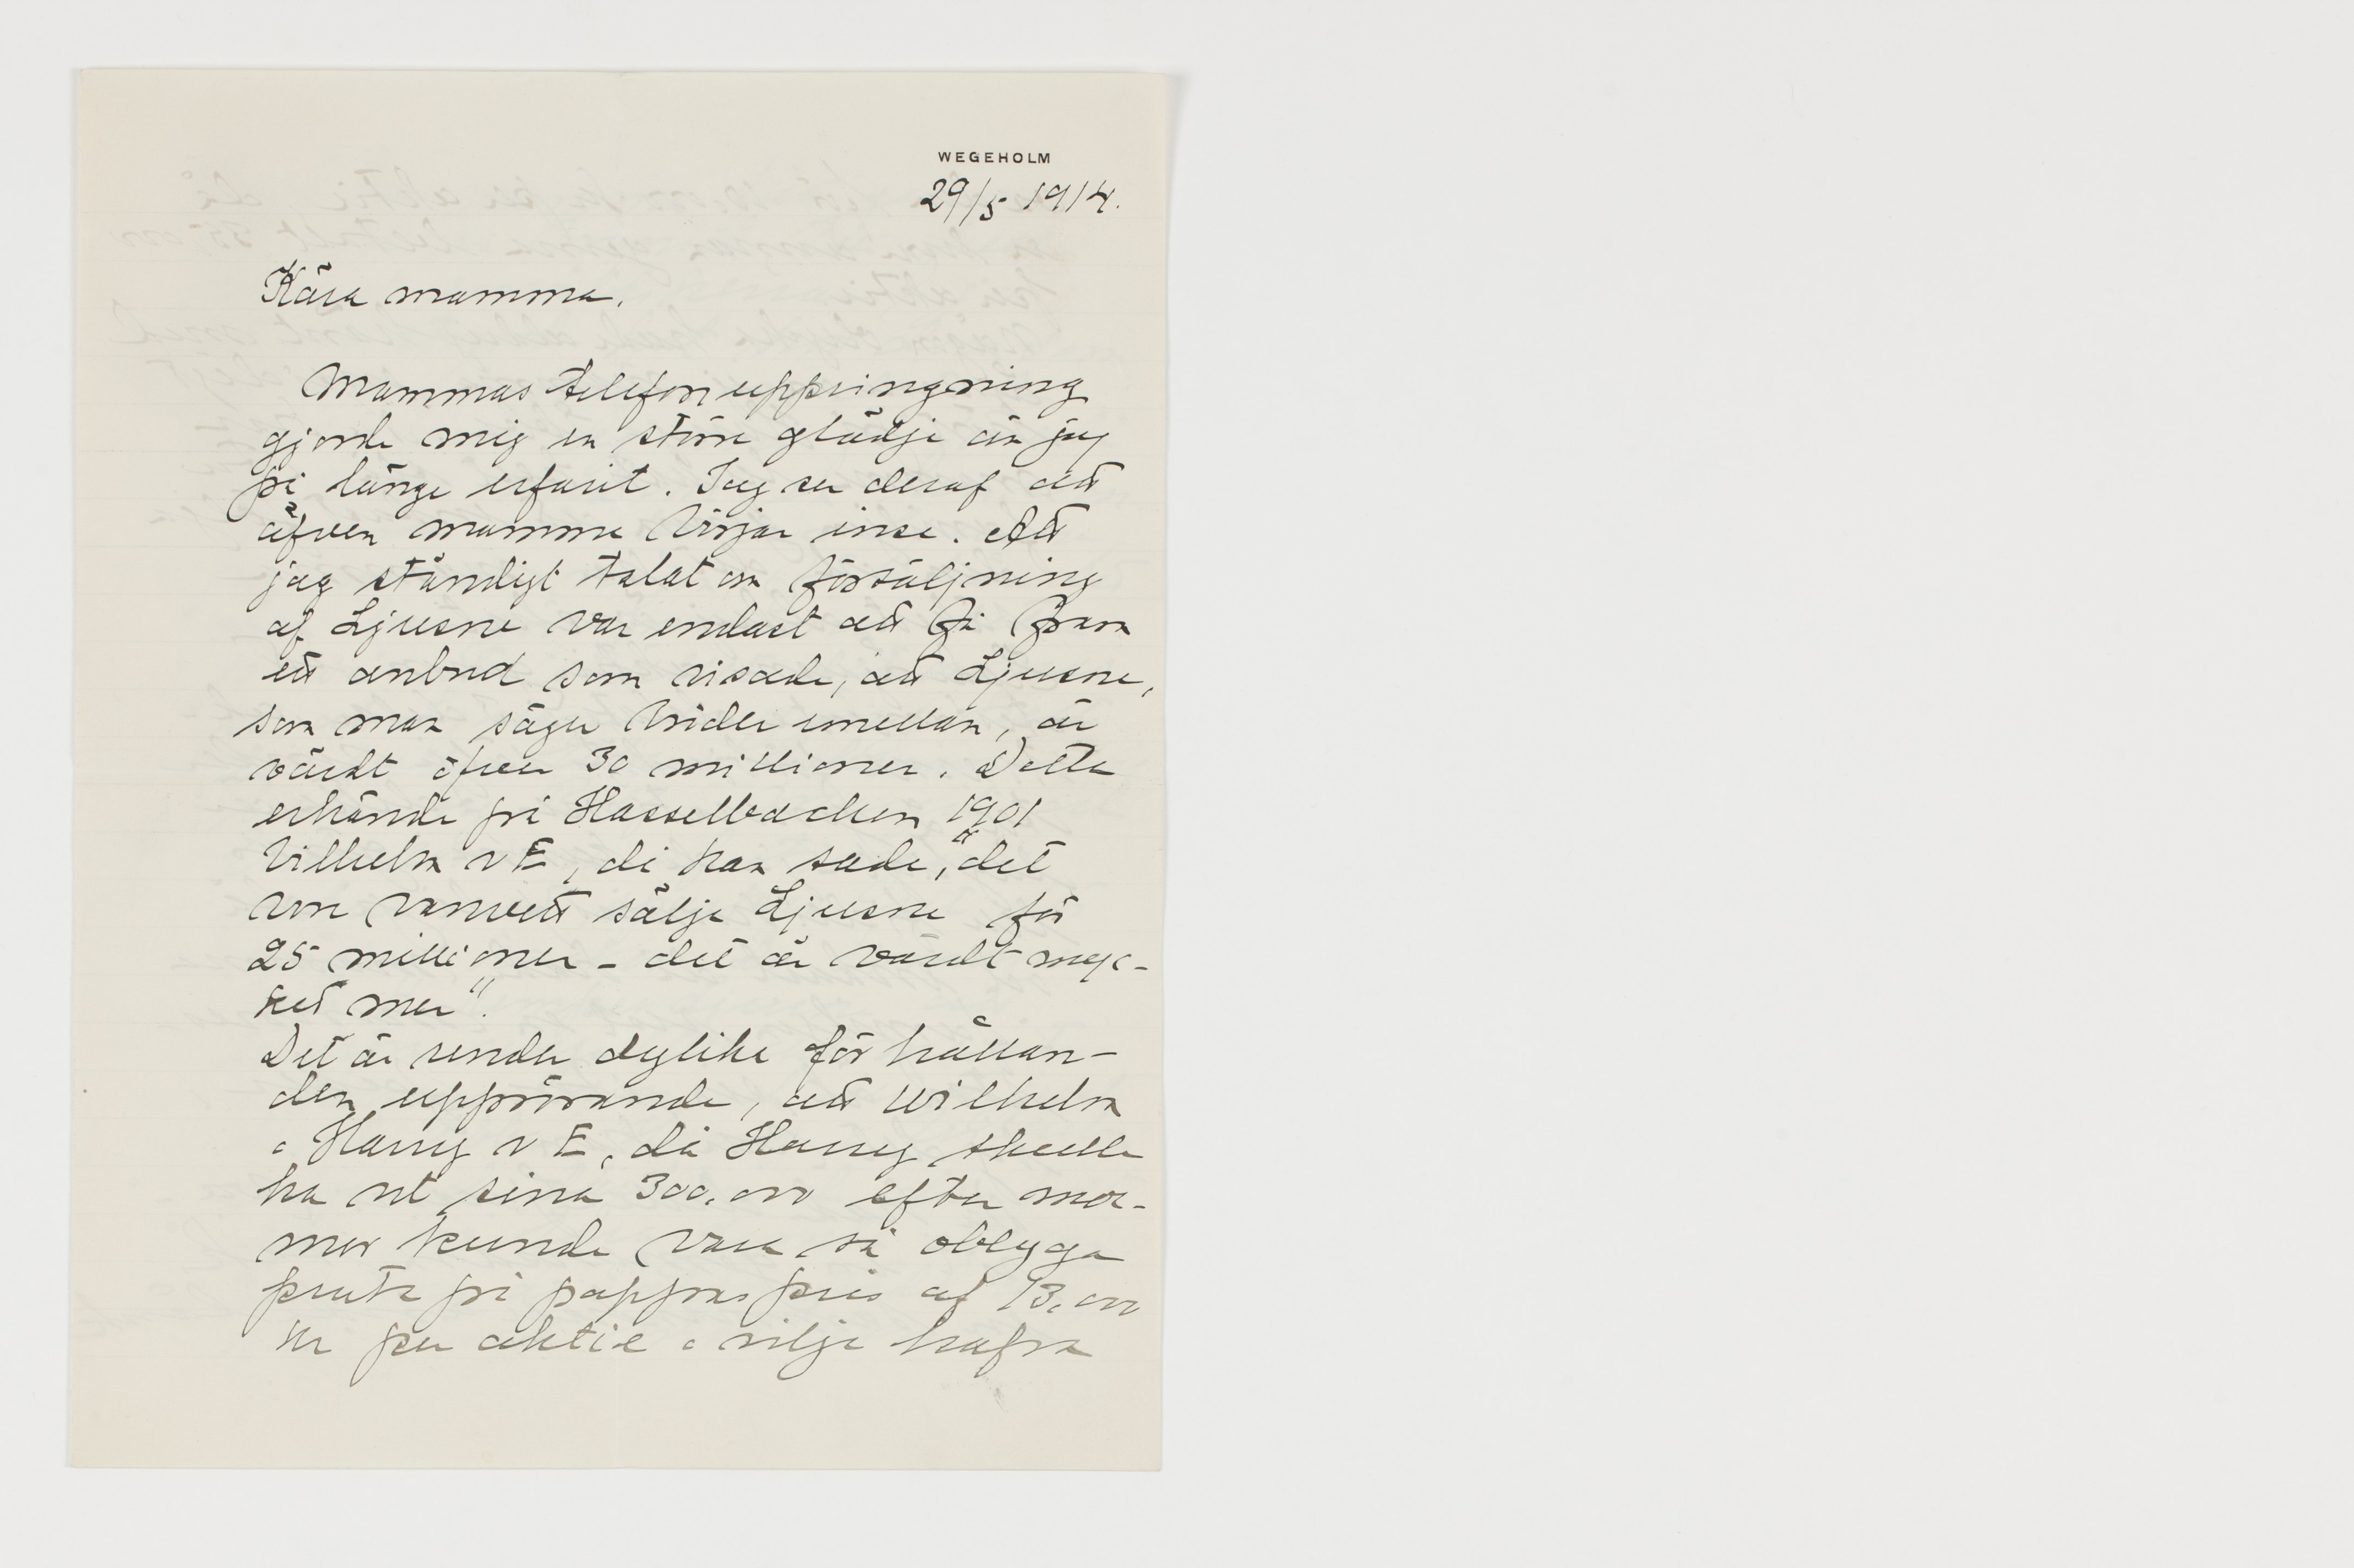 WEGEHOLM
29/5 1914.
Kära mamma.
Mammas telefonuppringning
gjorde mig en större glädje än jag
på länge erfarit. Jag ser deraf att
äfven mamma börjar inse. Att
jag ständigt talat om försäljning
af Ljusne var endast att få fram
ett anbud som visade, att Ljusne,
som man säger bröder emellan, är
värdt öfver 30 millioner. Detta
erkände på Hasselbacken 1901
Vilhelm v E, då han sade, "det
vore vanvett sälja Ljusne för
25 millioner - det är värdt myc-
ket mer".
Det är under dylika förhållan-
den upprörande, att Wilhelm
o Harry v E, då Harry skulle
ha ut sina 300.000 efter mor-
mor kunde vara så oblyga
pruta på pappas pris af 13.000
kr per aktie o vilja hafva